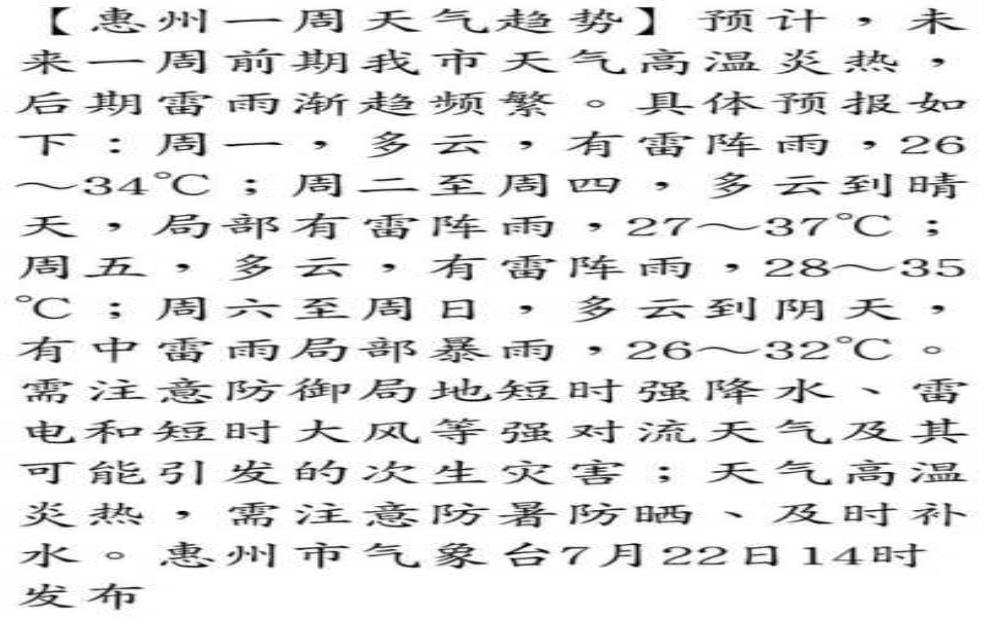 【惠州一周天气趋势】预计，未
来一周前期我市天气高温炎热，
后期雷雨渐趋频繁。具体预报如
下：周一，多云，有雷阵雨，26
～34℃；周二至周四，多云到晴
天，局部有雷阵雨，27～37℃；
周五，多云，有雷阵雨，28～35
℃；周六至周日，多云到阴天，
有中雷雨局部暴雨，26～32℃。
需注意防御局地短时强降水、雷
电和短时大风等强对流天气及其
可能引发的次生灾害；天气高温
炎热，需注意防暑防晒、及时补
水。惠州市气象台7月22日14时
发布